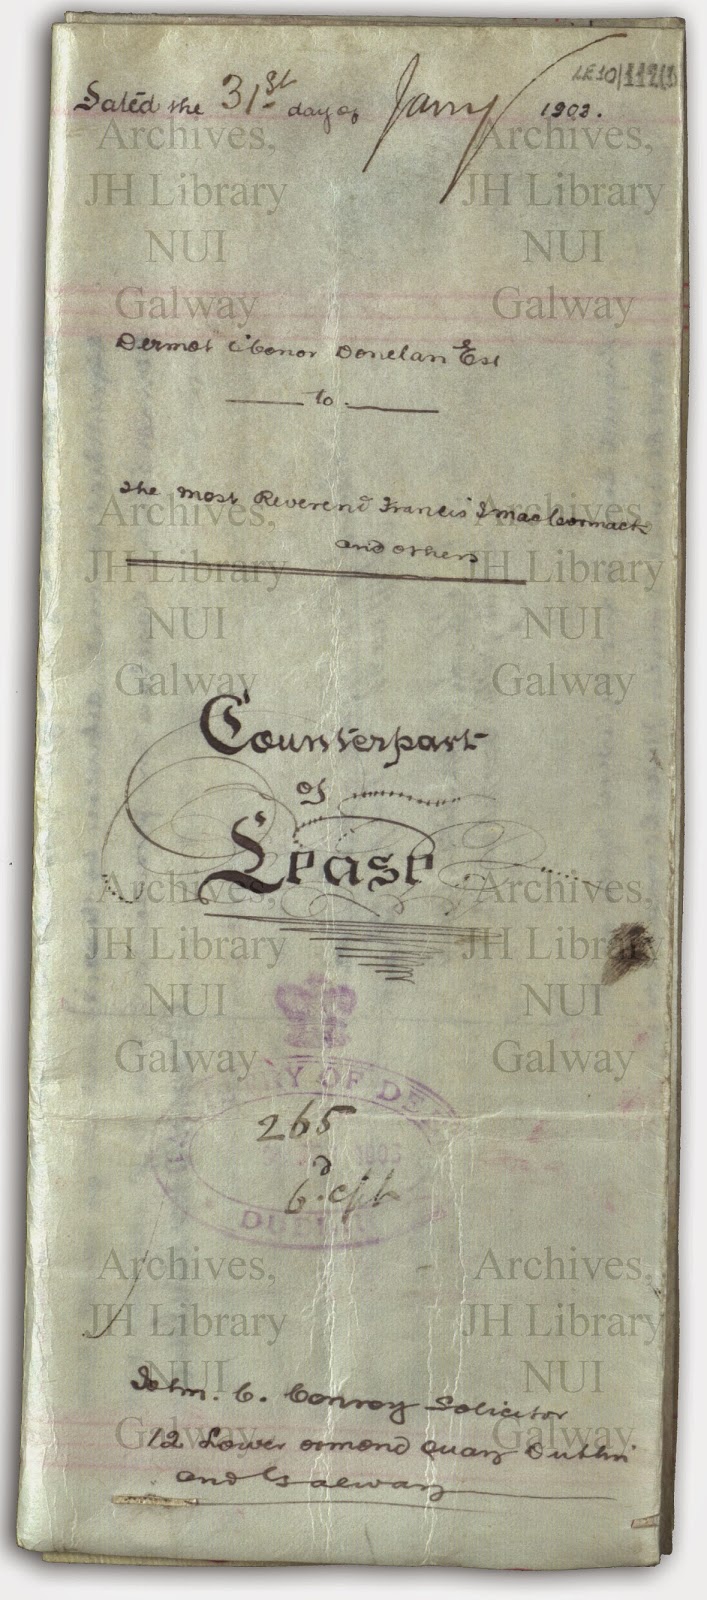 LE10/112(3
Dated the 31st day of Jany 1903.
Dermot O'Conor Donelan Esq
to
The Most Reverend Francis J MacCormack
and others
Counterpart
of
Lease
OF DE
265
6d. c/pt
DUBLIN
John. C. Conroy Solicitor
12 Lower Ormond Quay Dublin
and Galway
Archives, Archives,
JH Library JH Library
NUI NUI
Galway Galway
Archives, Archives,
JH Library JH Library
NUI NUI
Galway Galway
Archives, Archives,
JH Library JH Library
NUI NUI
Galway Galway
Archives, Archives,
JH Library JH Library
NUI NUI
Galway Galway